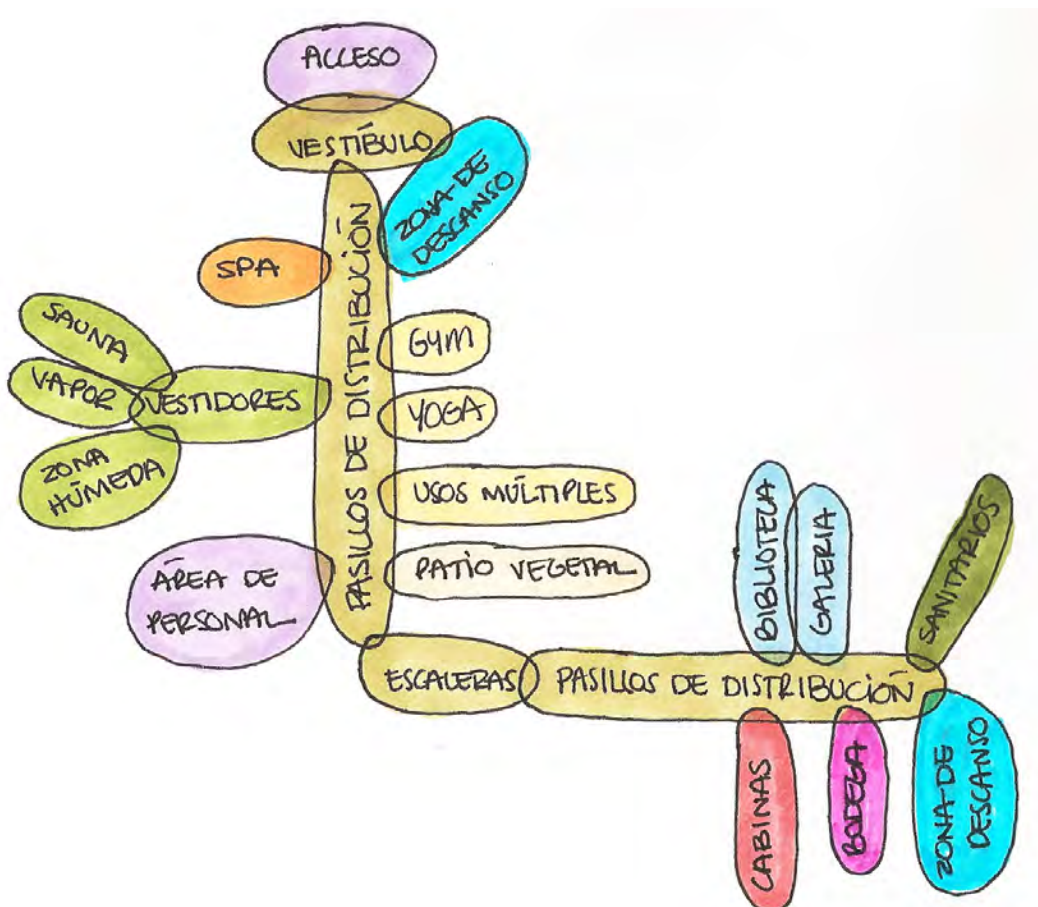 ACCESO
VESTÍBULO
ZONA DE
DESCANSO
PASILLOS DE DISTRIBUCIÓN
SPA
SAUNA
VAPOR
VESTIDORES
ZONA
HÚMEDA
GYM
YOGA
USOS MÚLTIPLES
PATIO VEGETAL
ÁREA DE
PERSONAL
ESCALERAS
PASILLOS DE DISTRIBUCIÓN
BIBLIOTECA
GALERIA
SANITARIOS
CABINAS
BODEGA
ZONA DE
DESCANSO